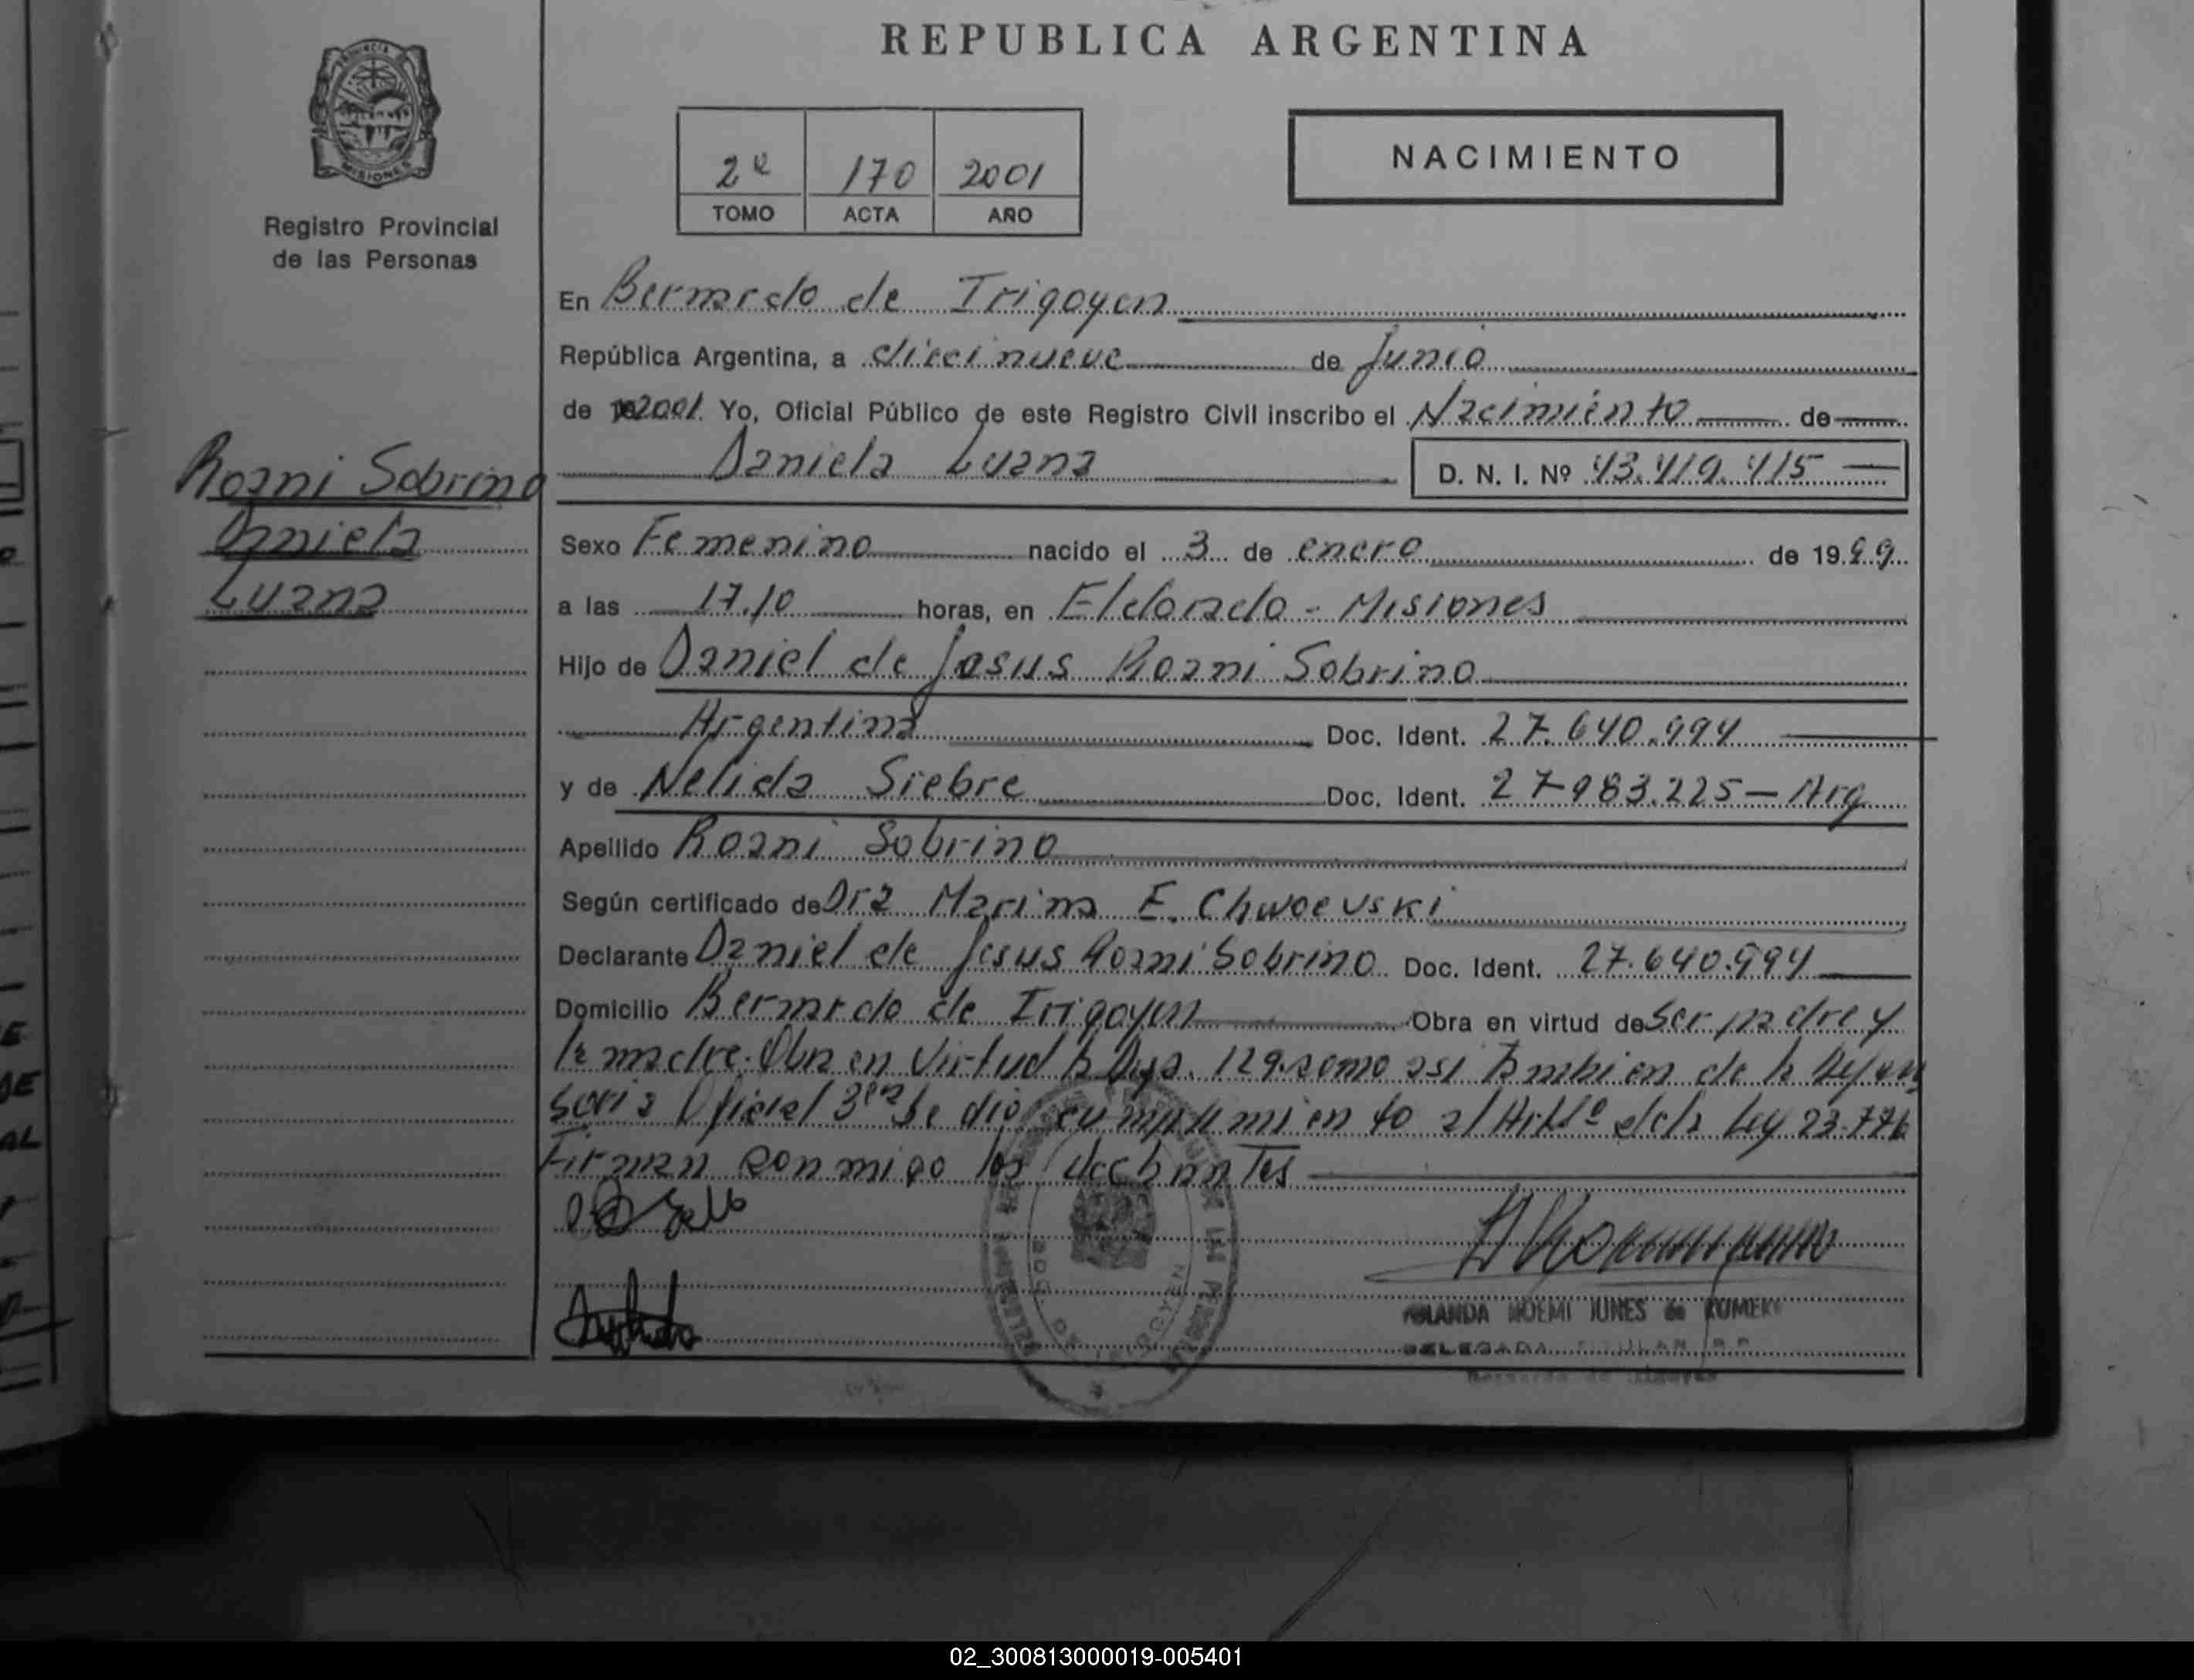 REPUBLICA ARGENTINA
PROVINCIA
MISIONES
Registro Provincial
de las Personas
2º 170 2001
TOMO ACTA AÑO
NACIMIENTO
En Bernardo de Irigoyen
República Argentina, a diecinueve de Junio
de 2001. Yo, Oficial Público de este Registro Civil inscribo el Nacimiento de
Daniela Luana D. N. I. Nº 43.419.415
Roani Sobrino
Daniela
Luana
Sexo Femenino nacido el 3 de enero de 1999
a las 17.10 horas, en Eldorado - Misiones
Hijo de Daniel de Jesus Roani Sobrino
Argentina Doc. Ident. 27.640.994
y de Nelida Siebre Doc. Ident. 27983.225 - Arg
Apellido Roani Sobrino
Según certificado de Dra Marina E.
Declarante Daniel de Jesus Roani Sobrino Doc. Ident. 27.640.994
Domicilio Bernardo de Irigoyen Obra en virtud de ser padre y
la madre. Obra en Virtud la 129. como asi Tambien de la Defen
soria Oficial 3ra Se dio cumplimiento al de la Ley 23.776
Firman conmigo los declarantes
NOEMI JUNES de ROMERO
DELEGADA TITULAR R.P.
Bernardo de Irigoyen
02_300813000019-005401